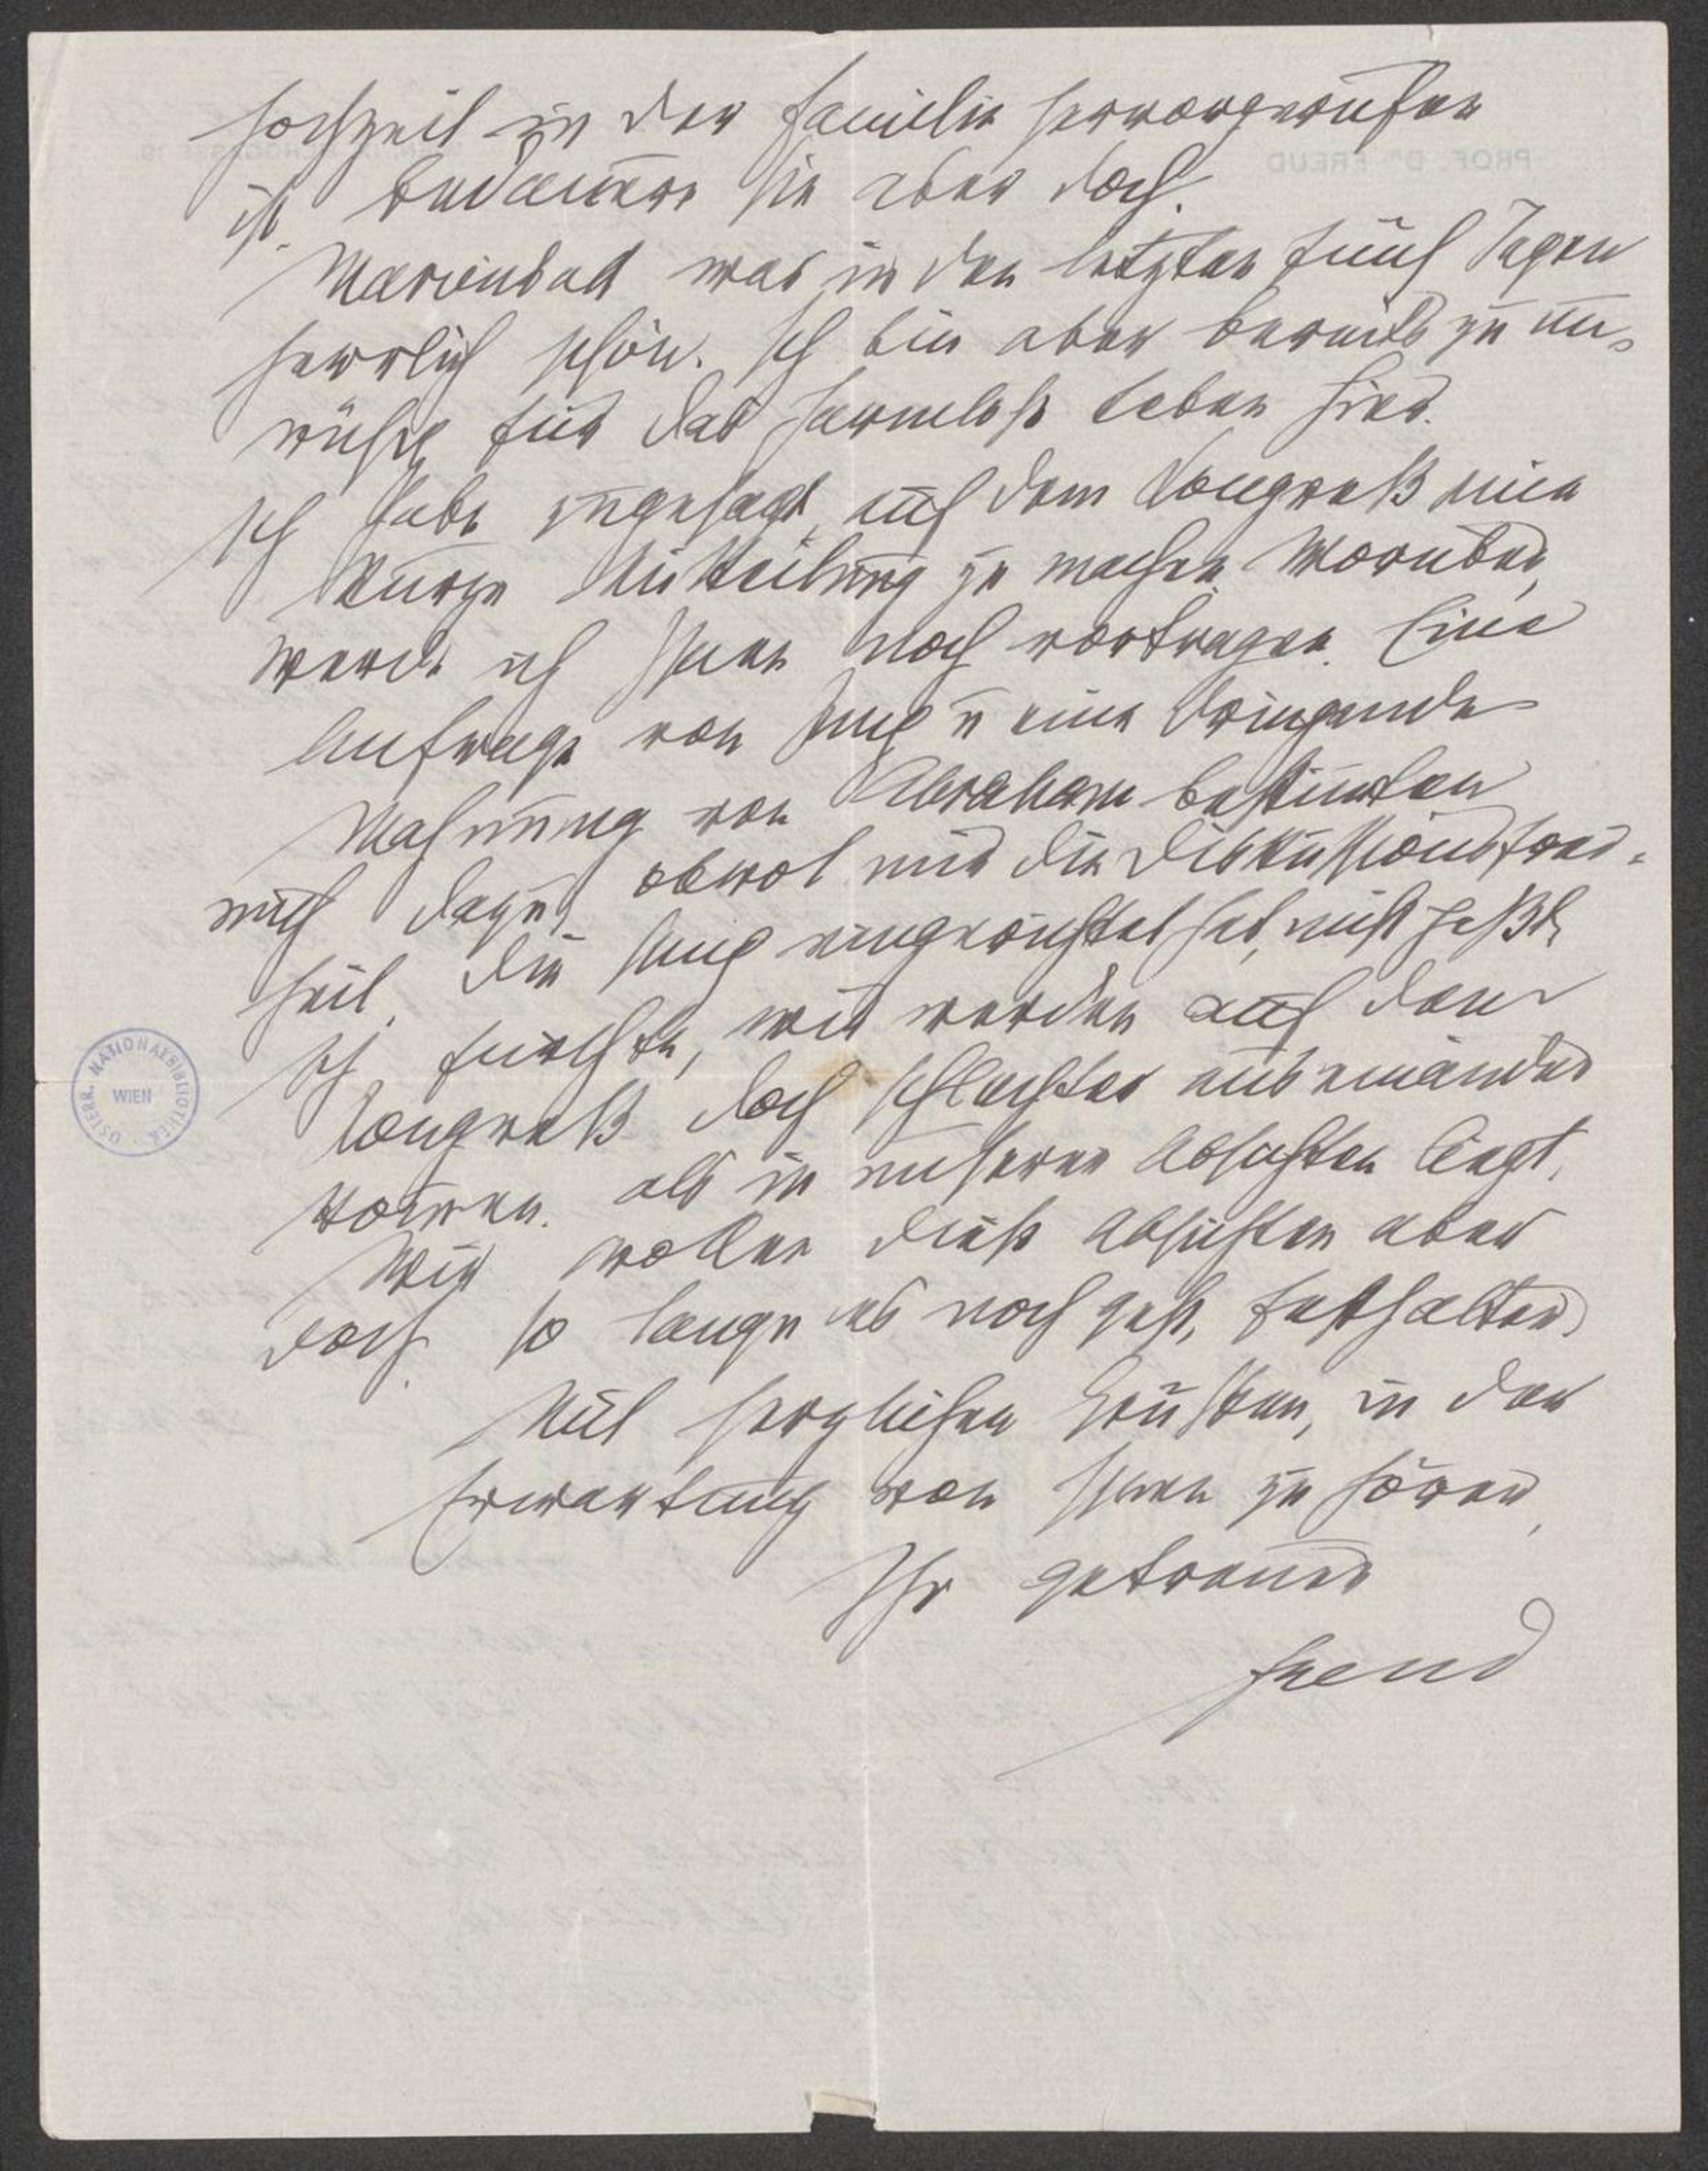 Hochzeit in der Familie hervorgerufen
ist, bedauere sie aber doch.
Marienbad war in den letzten fünf Tagen
herrlich schön. Ich bin aber bereits zu un-
ruhig für das harmlose Leben hier.
Ich habe zugesagt, auf dem Kongreß eine
kurze Mitteilung zu machen. Worüber,
werde ich Ihnen noch vortragen. Eine
Anfrage von Jung u eine dringende
Mahnung von Abraham bestimmten
mich dazu, obwol mir die Diskussionsfrei-
heit, die Jung eingerichtet hat, nicht
Ich fürchte, wir werden auf dem
Kongreß doch schlechter auseinander
kommen, als in unseren Absichten liegt.
Wir wollen diese Absichten aber
doch so lange es noch geht, festhalten.
Mit herzlichen Grüßen, in der
Erwartung von Ihnen zu hören,
Ihr getreuer
Freud
PROF. Dr. FREUD
ÖSTERR. NATIONALBIBLIOTHEK
WIEN